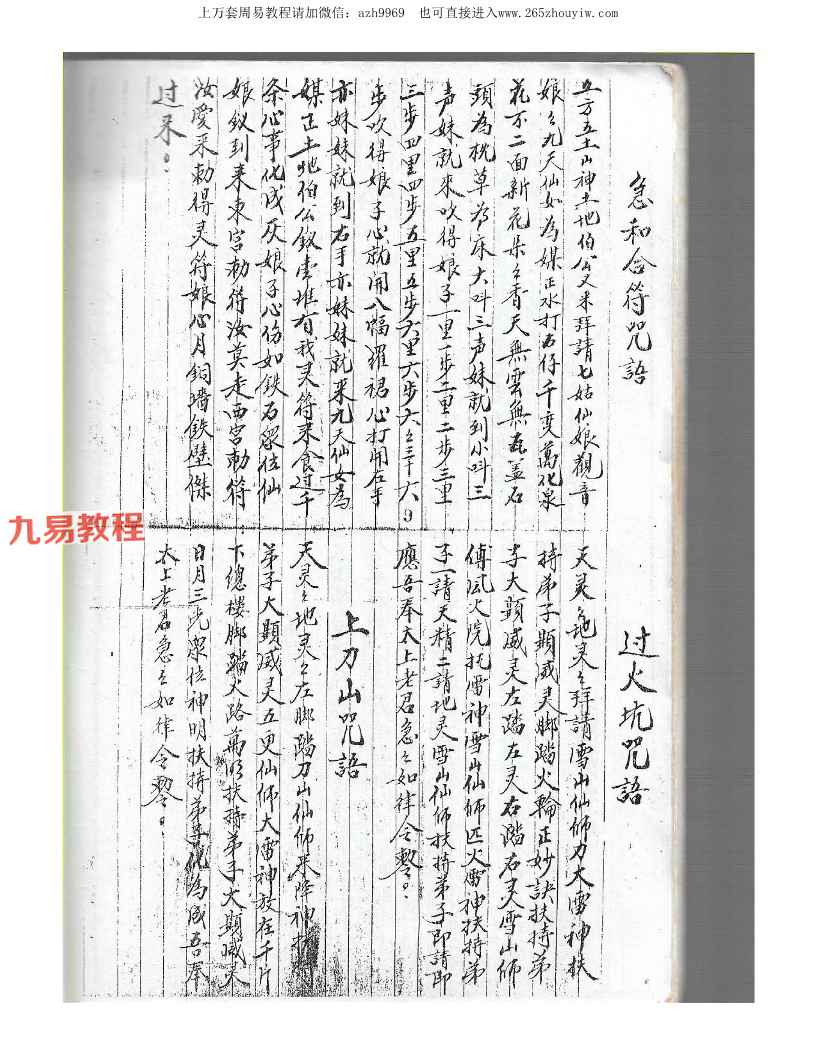 上万套周易教程请加微信：azh9969　也可直接进入www.265zhouyiw.com
急和合符咒語
五方五土山神土地伯公又来拜請七姑仙娘觀音
娘々九天仙女為媒正水打石仔千变萬化泉
花不二面新花朵々香天無雲無瓦盖石
頭為枕草為床大叫三声妹就到小叫三
声妹就來吹得娘子一里一步二里二步三里
三步四里四步五里五步六里六步六々三十六
步吹得娘子心就開八幅羅裙心打開左手
亦妹妹就到右手亦妹妹就来九天仙女為
媒正土地伯公 有我灵符来食过千
条心事化成灰娘子心伤如鉄石眾位仙
娘 到来東宫勅符汝莫走西宫勅符
汝愛来勅得灵符娘心月銅墻鉄壁傑
过来
过火坑咒語
天灵々地灵々拜請雪山仙师刀大雷神扶
持弟子顯威灵脚踏火輪正妙訣扶持弟
子大顕威灵左踏左灵右踏右灵雪山师
傅 火院托雷神雪山仙师匹火雷神扶持弟
子一請天精二請地灵雪山仙师扶持弟子即請即
應吾奉太上老君急々如律令
上刀山咒語
天灵々地灵々左脚踏刀山仙师来降神扶持
弟子大顕威灵五更仙师大雷神放在千片
下總楼脚踏火路萬 扶持弟子大顕威灵
日月三光眾位神明扶持弟子 為成吾奉
太上老君急々如律令
九易教程